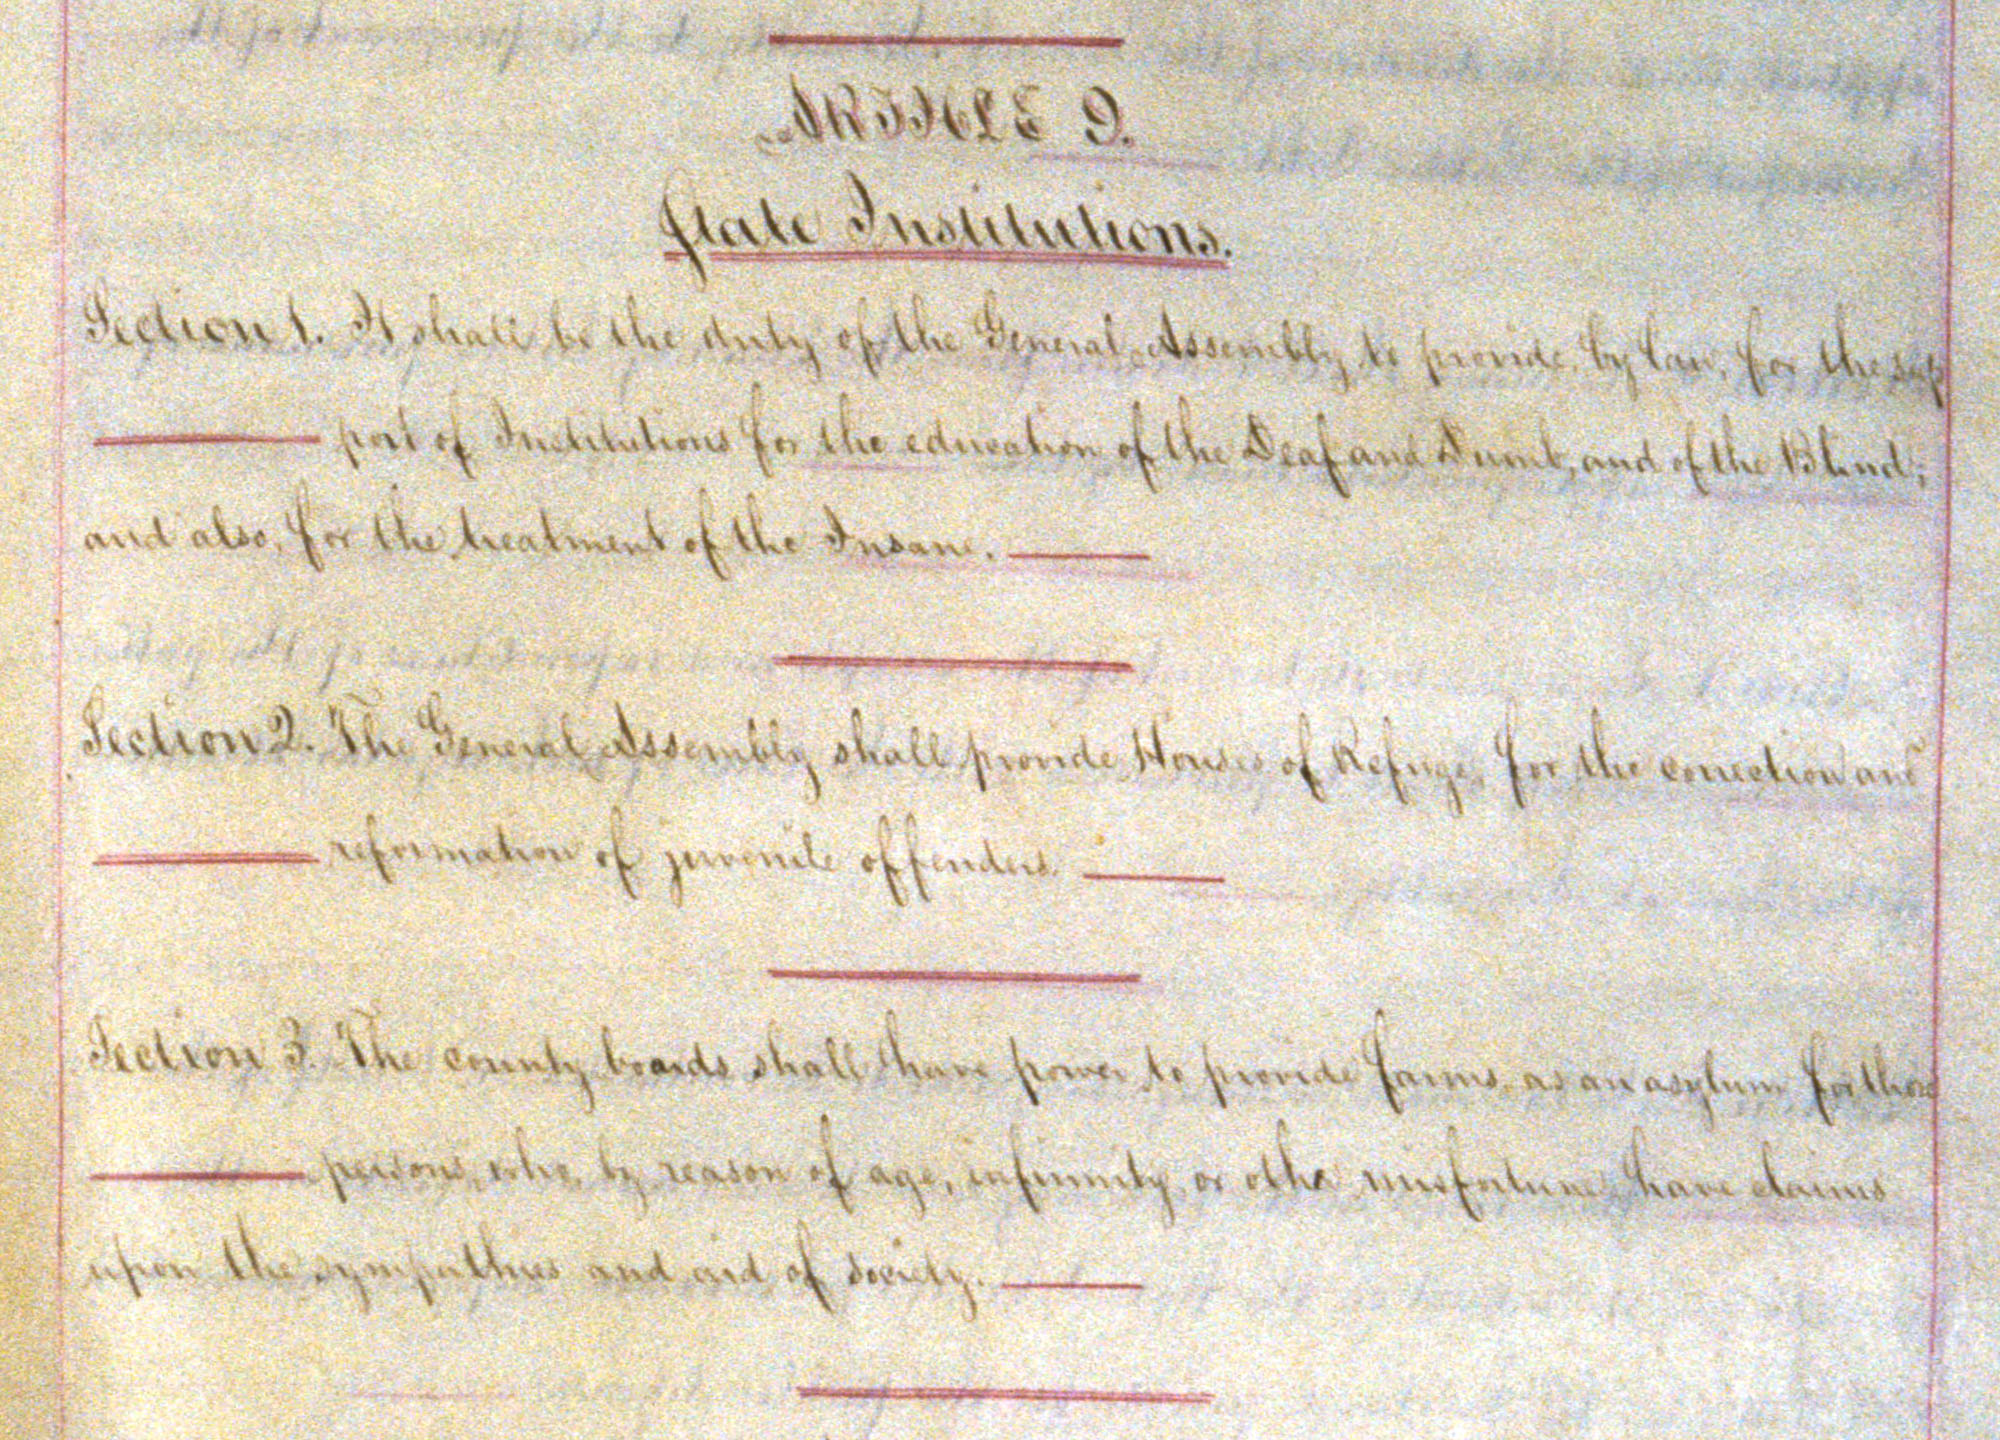 ARTICLE 9.
State Institutions.
Section 1. It shall be the duty of the General Assembly to provide, by law, for the sup
port of Institutions for the education of the Deaf and Dumb, and of the Blind;
and also, for the treatment of the Insane.
Section 2. The General Assembly shall provide Houses of Refuge, for the correction and
reformation of juvenile offenders.
Section 3. The county boards shall have power to provide farms, as an asylum for those
persons, who, by reason of age, infirmity, or other misfortune, have claims
upon the sympathies and aid of society.